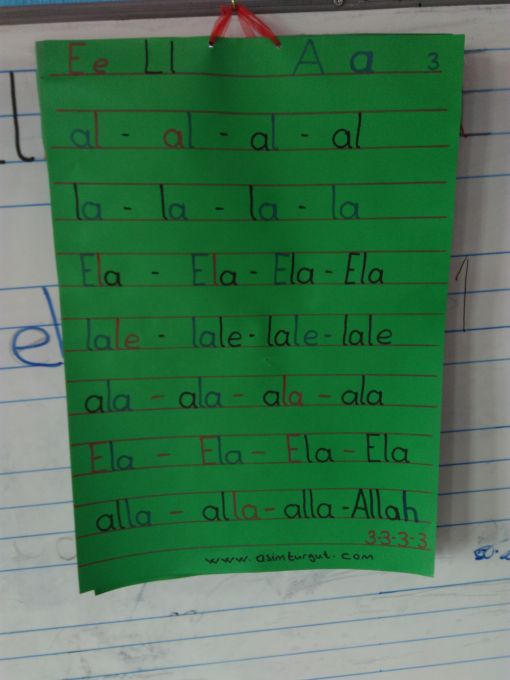 Ee Ll A a 3
al - al - al - al
la - la - la - la
Ela - Ela - Ela - Ela
lale - lale - lale - lale
ala - ala - ala - ala
Ela - Ela - Ela - Ela
alla - alla - alla - Allah
3-3-3-3
www.asimturgut.com
el
1